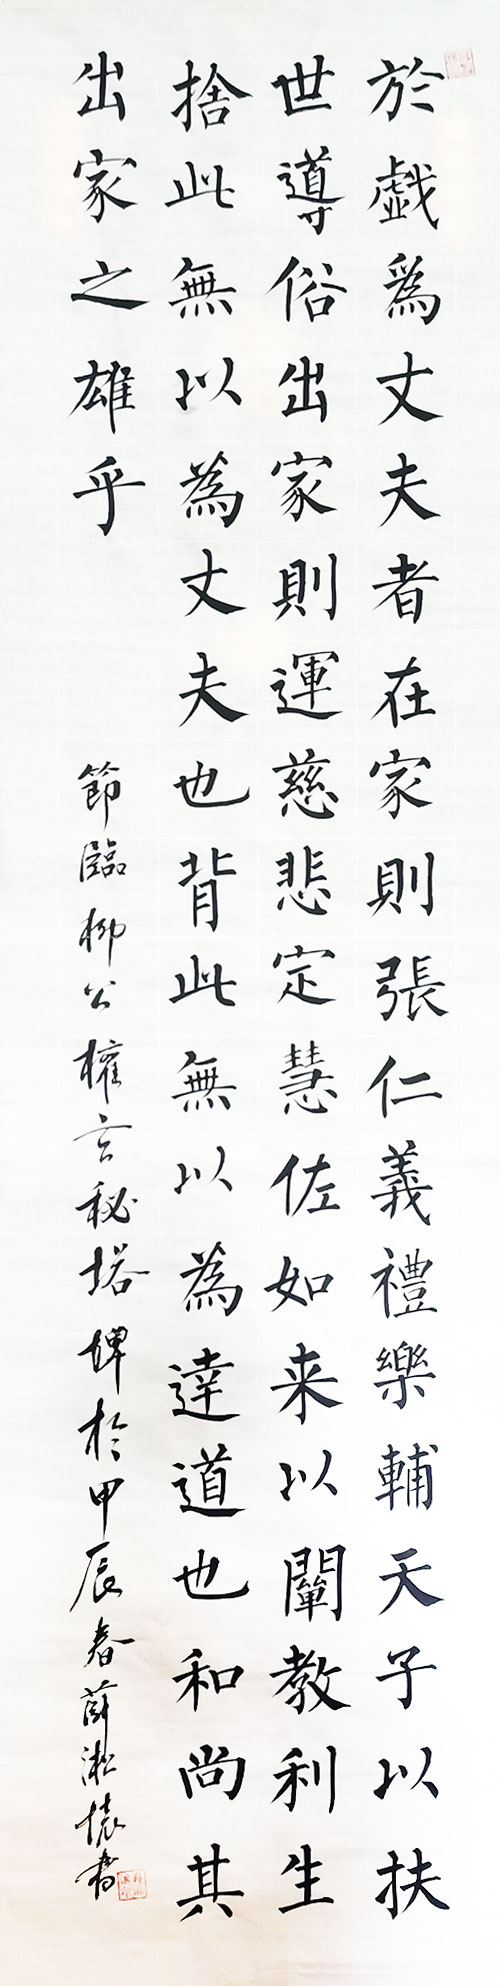 於戲為丈夫者在家則張仁義禮樂輔天子以扶
世導俗出家則運慈悲定慧佐如来以闡教利生
捨此無以為丈夫也背此無以為達道也和尚其
出家之雄乎
節臨柳公權玄秘塔碑於甲辰春薛淞懷書